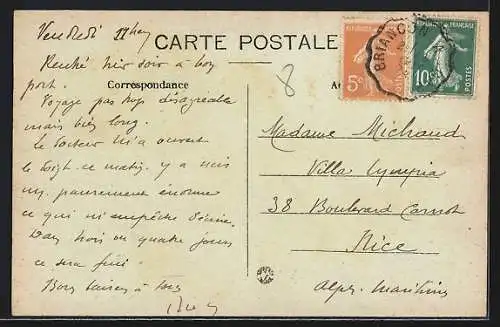 Vendredi 11h
CARTE POSTALE
Rentré hier soir à bon
port.
Correspondance
Voyage pas trop désagréable
mais bien long.
Le docteur m'a ouvert
le doigt ce matin. y a mis
un pansement énorme
ce qui m'empêche d'écrire.
Dans trois ou quatre jours
ce sera fini.
Bons baisers à tous
8
RÉPUBLIQUE FRANÇAISE
5c
10c
POSTES
BRIANCON
Madame Michaud
Villa Lympia
38 Boulevard Carnot
Nice
Alpes-Maritimes